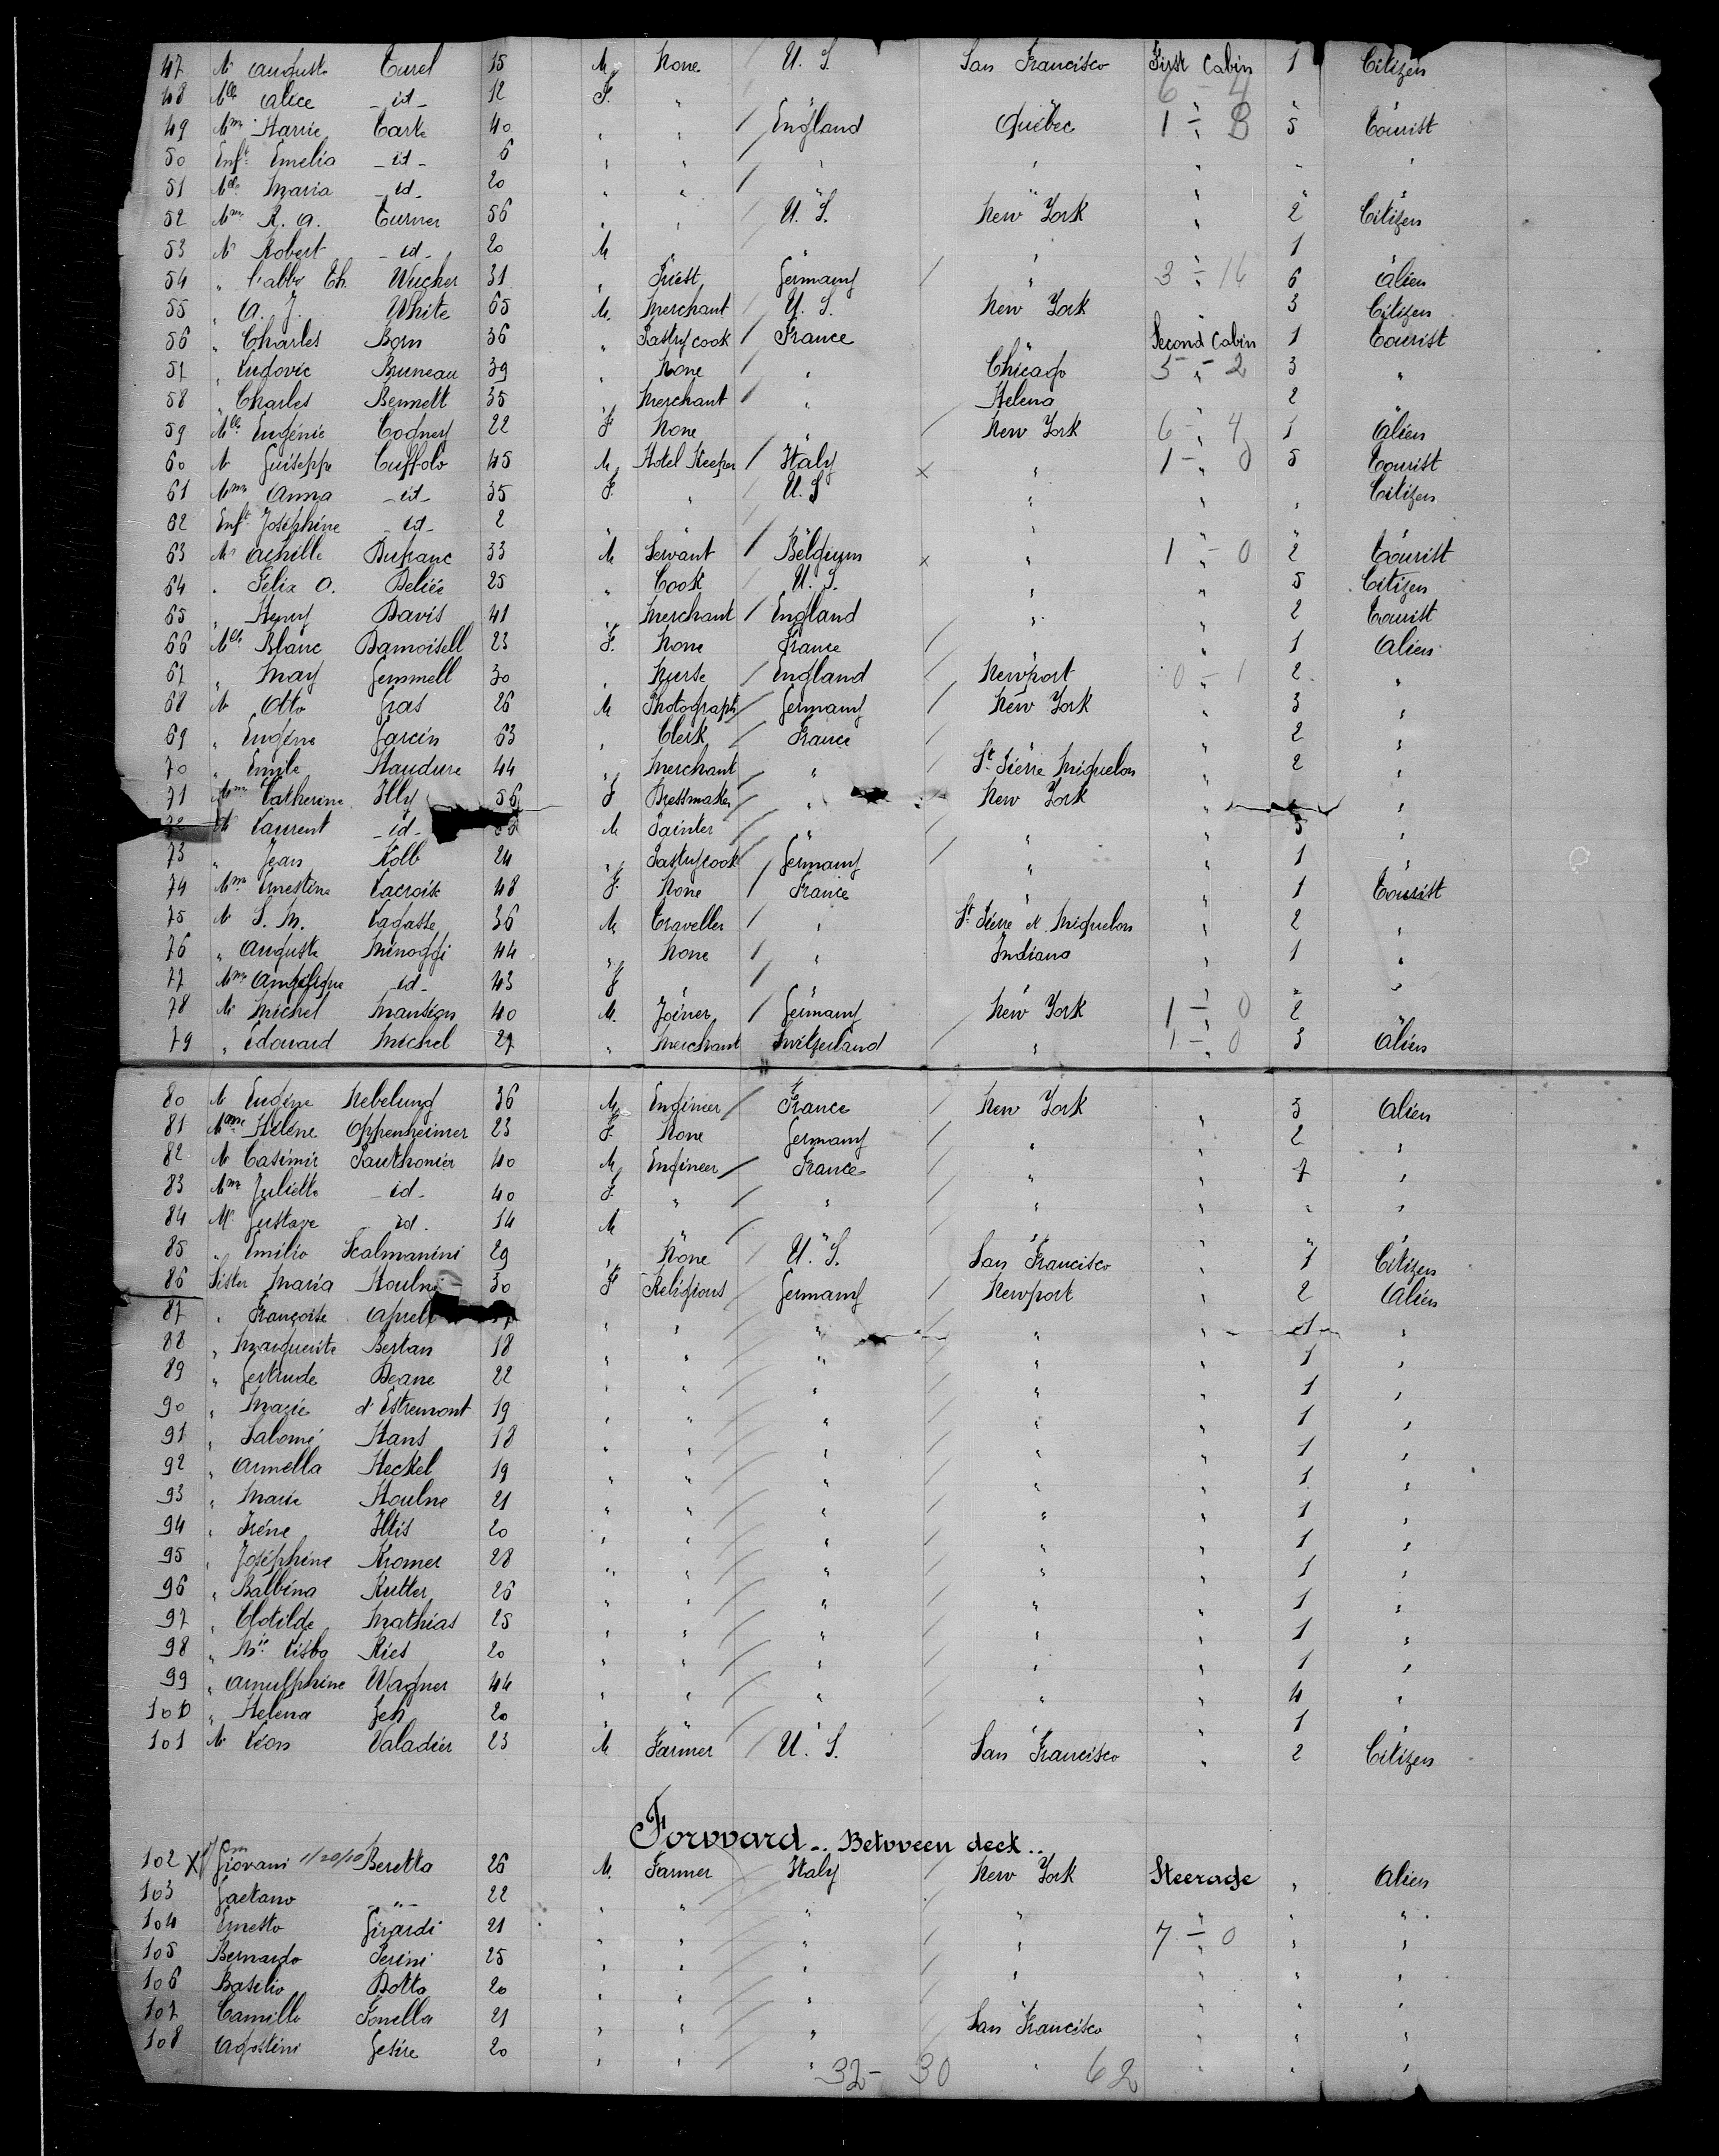 47 Mr Auguste Turel 15 M None / U. S. San Francisco First Cabin 1 Citizen
48 Mlle Alice _id_ 12 F. " 6 - 4
49 Mme Harrie Tarte 40 " " / England Québec 1 - 8 5 Tourist
50 Enft Emelia _id_ 6 " " / " " " " "
51 Mlle Maria _id_ 20 " " / " " " " "
52 Mme R. A. Turner 56 " " / U. S. New York " 2 Citizen
53 Mr Robert _id_ 20 M " " " 1 "
54 " l'abbé Th. Wucher 31 " Priest Germany / " 3 - 16 6 Alien
55 " A. J. White 65 M. Merchant / U. S. New York " 3 Citizen
56 " Charles Born 36 " Pastry cook / France Second Cabin 1 Tourist
57 " Ludovic Bruneau 39 " None / " Chicago 5 - 2 3 "
58 " Charles Bennett 35 " Merchant / " Helena " 2 "
59 Mlle Eugénie Cogney 22 F None " / New York 6 - 4 1 Alien
60 Mr Guiseppe Cuffolo 45 M Hotel Keeper / Italy x " 1 - 0 5 Tourist
61 Mme Anna _id_ 35 F. " / U. S " " " Citizen
62 Enft Joséphine _id_ 2 " " / " " " " "
63 Mr Achille Dufranc 33 M Servant / Belgium x " 1 - 0 2 Tourist
64 " Félix O. Deliée 25 " Cook / U. S. " " 5 Citizen
65 " Henry Davis 41 " Merchant / England " " 2 Tourist
66 Mlle Blanc Damoisell 23 F. None France / " " 1 Alien
67 " May Gemmell 30 " Nurse / England / Newport 0 - 1 2 "
68 Mr Otto Gras 26 M Photograph / Germany / New York " 3 "
69 " Eugène Garcin 63 " Clerk / France / " " 2 "
70 " Emile Haudure 44 " Merchant / " / St Pierre Miquelon " 2 "
71 Mme Catherine Illy 56 F Dressmaker / " / New York " "
72 Mr Laurent _id_ M Painter / " / " " 5 "
73 " Jean Kolb 24 " Pastry cook / Germany / " " 1 "
74 Mme Ernestine Lacroix 48 F. None / France " " 1 Tourist
75 Mr S. M. Lagasse 36 M Traveller / " St Pierre et Miquelon " 2 "
76 " Auguste Minoggi 44 " None / " Indiana " 1 "
77 Mme Angélique _id_ 43 F " / " " " " "
78 Mr Michel Mansign 40 M. Joiner / Germany New York 1 - 0 2 "
79 " Edouard Michel 27 " Merchant Switzerland / " 1 - 0 3 Alien
80 Mr Eugène Nebelung 36 M Engineer / France / New York " 3 Alien
81 Mme Hélène Oppenheimer 23 F. None Germany / " " 2 "
82 Mr Casimir Pauthonier 40 M Engineer / France / " " 7 "
83 Mme Juliette _id_ 40 F. " / " / " " " "
84 Mr Gustave _id_ 14 M " / " / " " " "
85 " Emilio Scalmanini 29 " None / U. S. San Francisco " 1 Citizen
86 Sister Maria Houlne 30 F Religious Germany / Newport " 2 Alien
87 " Françoise " " / " / " " 1 "
88 " Marguerite Bertan 18 " " / " / " " 1 "
89 " Gertrude Deane 22 " " / " / " " 1 "
90 " Marie d'Estremont 19 " " / " / " " 1 "
91 " Salomé Hans 18 " " / " / " " 1 "
92 " Armella Heckel 19 " " / " / " " 1 "
93 " Marie Houlne 21 " " / " / " " 1 "
94 " Irène Iltis 20 " " / " / " " 1 "
95 " Joséphine Kromer 28 " " / " / " " 1 "
96 " Balbina Kutter 26 " " / " / " " 1 "
97 " Clotilde Mathias 25 " " / " / " " 1 "
98 " Mie Lisba Ries 20 " " / " / " " 1 "
99 " Arnulphine Wagner 44 " " / " / " " 4 "
100 " Helena Jeh 20 " " / " / " " 1 "
101 Mr Léon Valadier 23 M Farmer / U. S. San Francisco " 2 Citizen
Forward .. Between deck ..
102 X Giovani 1/20/10 Beretta 26 M. Farmer Italy / New York Steerage " Alien
103 Gaetano _"_ 22 " " / " / " " " "
104 Ernesto Girardi 21 " " / " / " 7 - 0 " "
105 Bernardo Perini 25 " " / " / " " " "
106 Basilio Botta 20 " " / " / " " " "
107 Camillo Fonella 21 " " / " / San Francisco " " "
108 Agostini Gesire 20 " " / " / " " " "
32 - 30 62